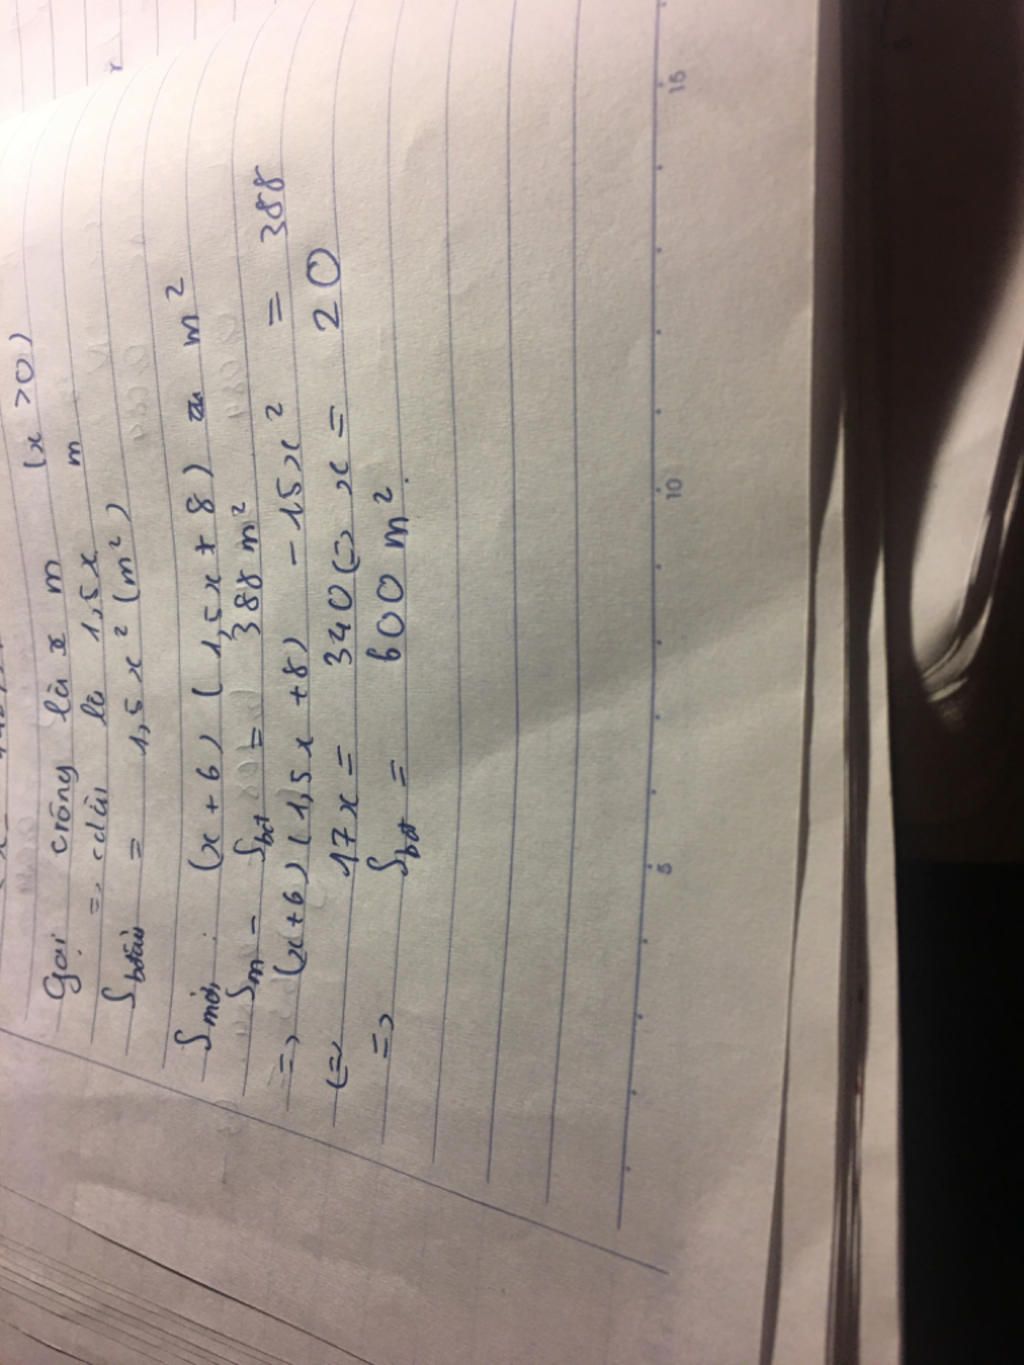 Gọi crộng là x m (x >0)
=> cdài là 1,5x m
S bđầu = 1,5x² (m²)
Smới: (x+6) (1,5x+8) m²
Sm - Sbđ = 388 m²
=> (x+6) (1,5x +8) - 15x² = 388
<=> 17x = 340 <=> x = 20
=> Sbđ = 600 m².
5
10
15